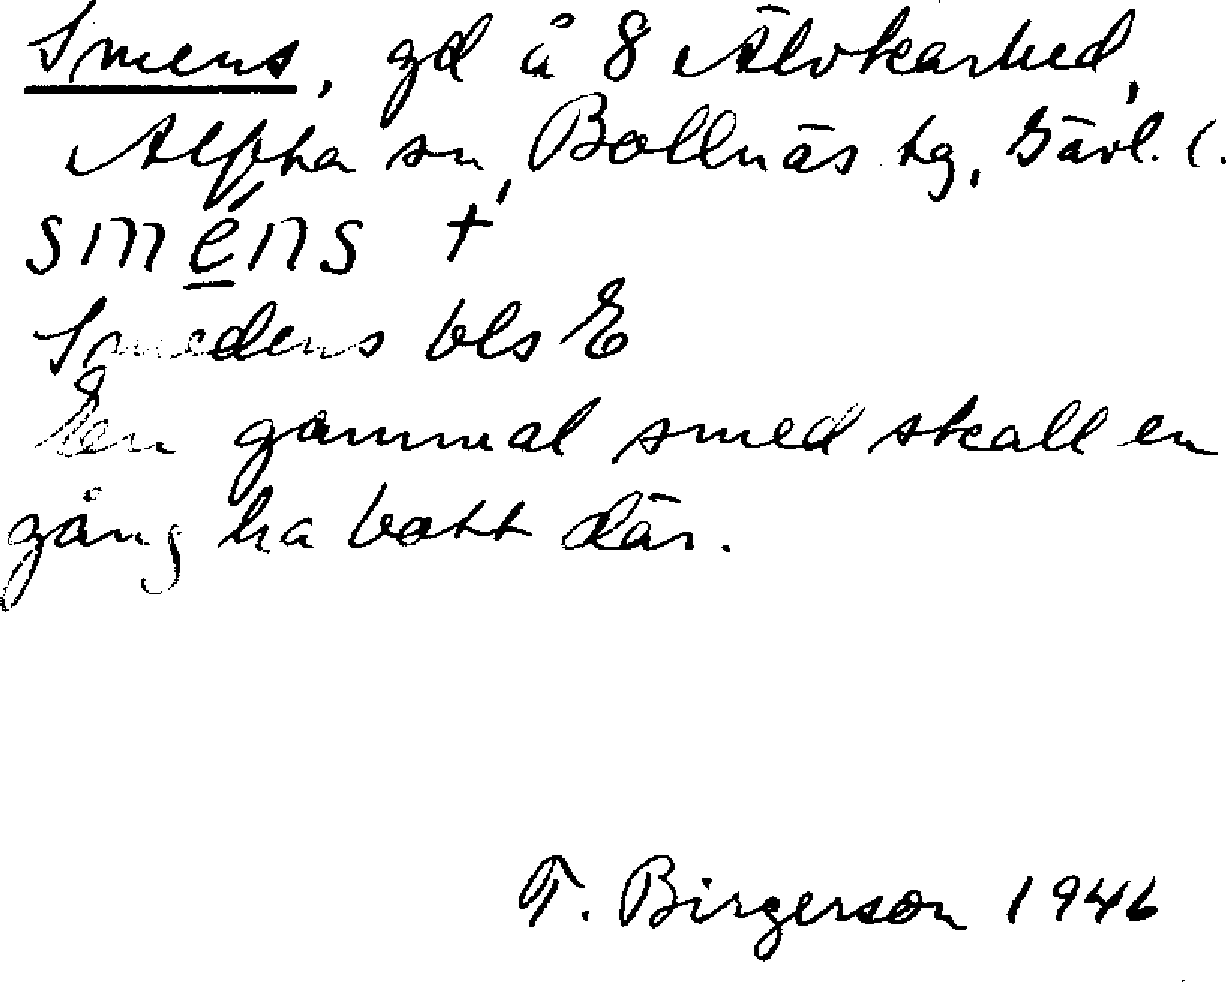 Smens, gd å 8 Älvkarhed,
Alfta sn, Bollnäs tg, Gävl. l.
smens +
Smedens bls E
En gammal smed skall en
gång ha bott där.
T. Birgerson 1946